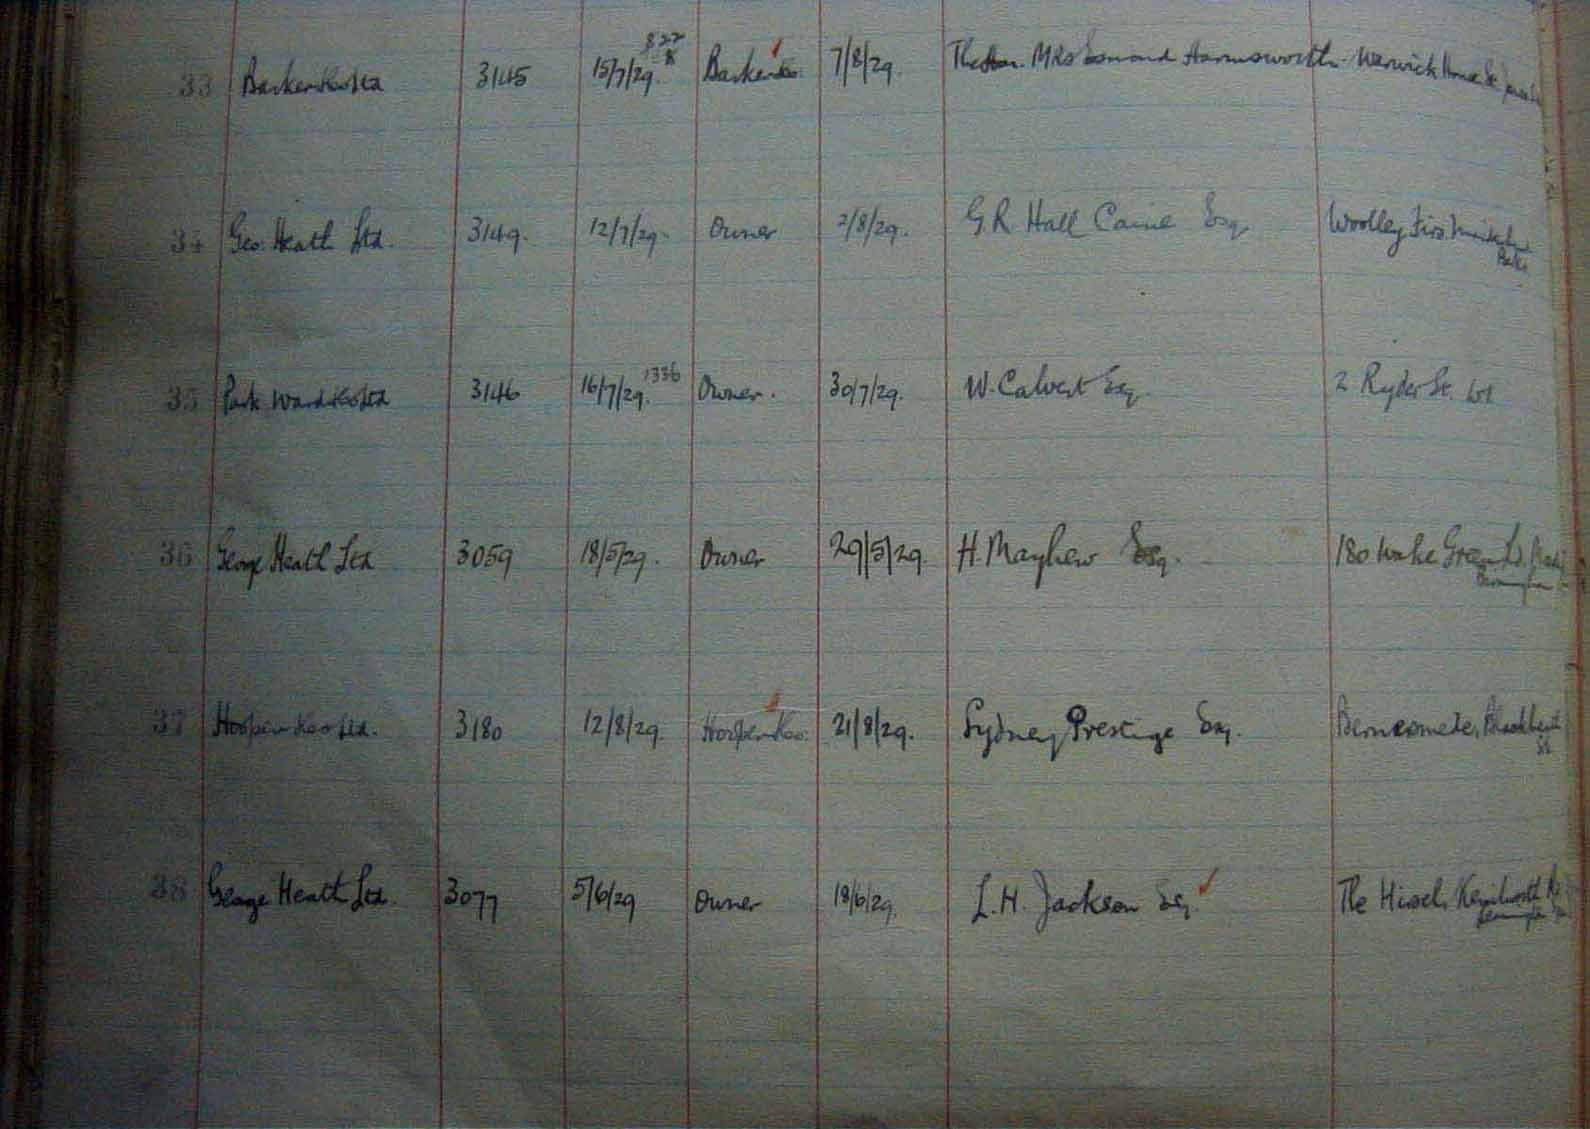 822
33 Barker & Co Ltd 3145 15/7/29. 8 Barker & Co. 7/8/29. The Hon. Mrs Esmond Harmsworth. Warwick House St. James's
34 Geo. Heath Ltd. 3149. 12/7/29. Owner 2/8/29. G.R Hall Caine Esq. Woolley Firs. Maidenhead
Berks
35 Park Ward & Co Ltd 3146 16/7/29. 1336 Owner. 30/7/29. W. Calvert Esq. 2 Ryder St. W1
36 George Heath Ltd 3059 18/5/29. Owner 29/5/29. H. Mayhew Esq. 180 Wake Green Rd.
Birmingham
37 Hooper & Co Ltd. 3180 12/8/29. Hooper & Co. 21/8/29. Sydney Prestige Esq. Blackheath
38 George Heath Ltd. 3077 5/6/29 Owner 18/6/29. L.H. Jackson Esq. The Hirsel, Kenilworth Rd